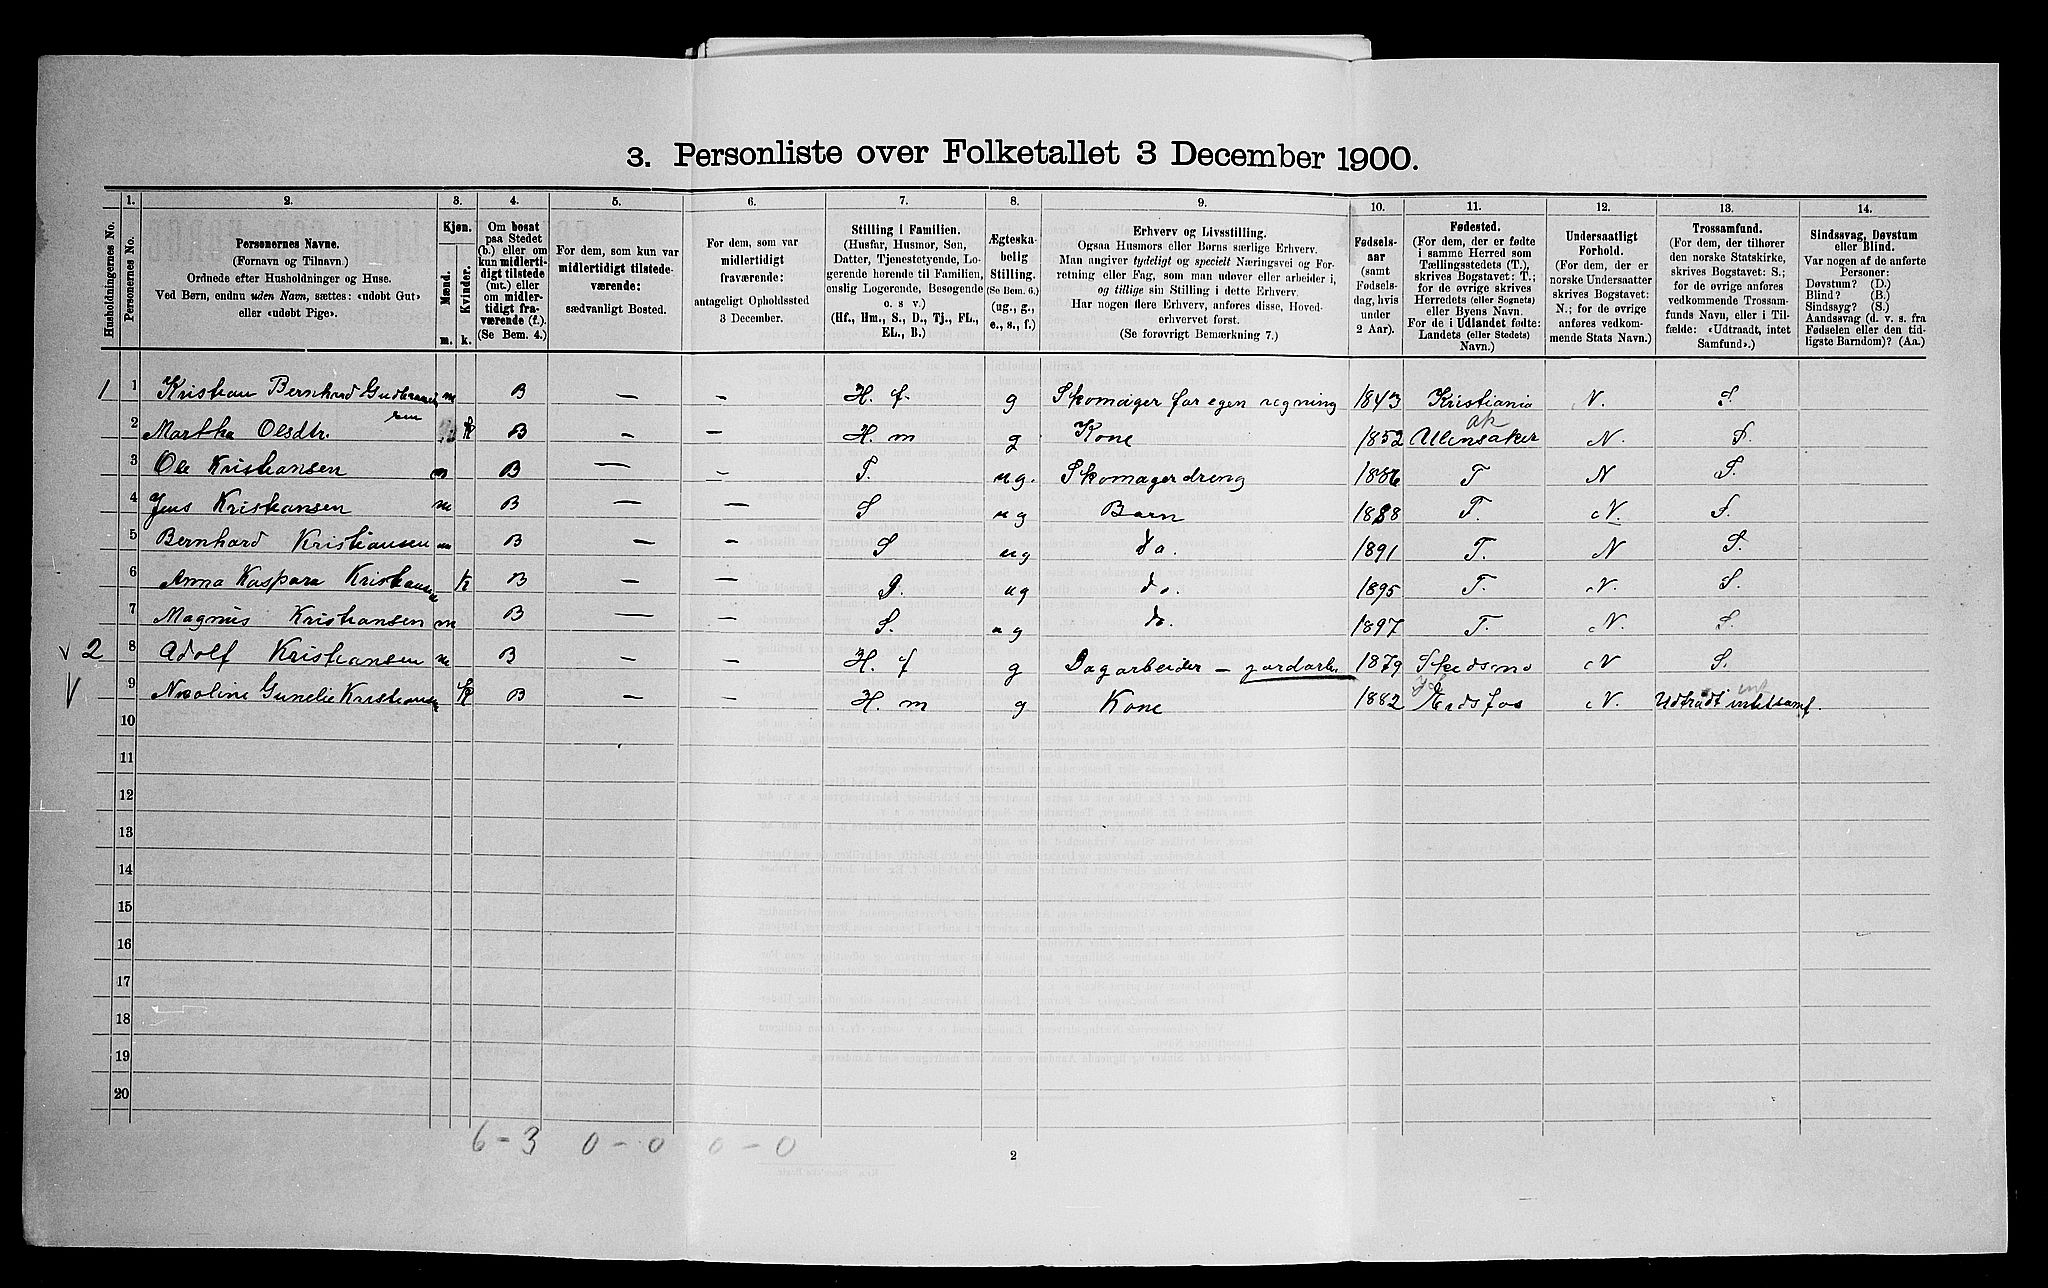 3. Personliste over Folketallet 3 December 1900.
Husholdningernes No.
1. Personernes No.
2. Personernes Navne. (Fornavn og Tilnavn.) Ordnede efter Husholdninger og Huse. Ved Børn, endnu uden Navn, sættes: «udøbt Gut» eller «udøbt Pige».
3. Kjøn. Mænd. m. Kvinder. k.
4. Om bosat paa Stedet (b.) eller om kun midlertidigt tilstede (mt.) eller om midlertidigt fraværende (f.). (Se Bem. 4.)
5. For dem, som kun var midlertidigt tilstedeværende: sædvanligt Bosted.
6. For dem, som var midlertidigt fraværende: antageligt Opholdssted 3 December.
7. Stilling i Familien. (Husfar, Husmor, Søn, Datter, Tjenestetyende, Logerende hørende til Familien, enslig Logerende, Besøgende o. s v.) (Hf., Hm., S., D., Tj., FL., EL., B.)
8. Ægteskabelig Stilling. (Se Bem. 6.) (ug., g., e., s., f.)
9. Erhverv og Livsstilling. Ogsaa Husmors eller Børns særlige Erhverv. Man angiver tydeligt og specielt Næringsvei og Forretning eller Fag, som man udøver eller arbeider i, og tillige sin Stilling i dette Erhverv. Har nogen flere Erhverv, anføres disse, Hovederhvervet først. (Se forøvrigt Bemærkning 7.)
10. Fødselsaar (samt Fødselsdag, hvis under 2 Aar).
11. Fødested. (For dem, der er fødte i samme Herred som Tællingsstedets (T.), skrives Bogstavet: T.; for de øvrige skrives Herredets (eller Sognets) eller Byens Navn. For de i Udlandet fødte: Landets (eller Stedets) Navn.)
12. Undersaatligt Forhold. (For dem, der er norske Undersaatter skrives Bogstavet: N.; for de øvrige anføres vedkommende Stats Navn.)
13. Trossamfund. (For dem, der tilhører den norske Statskirke, skrives Bogstavet: S.; for de øvrige anføres vedkommende Trossamfunds Navn, eller i Tilfælde: «Udtraadt, intet Samfund».)
14. Sindssvag, Døvstum eller Blind. Var nogen af de anførte Personer: Døvstum? (D.) Blind? (B.) Sindssyg? (S.) Aandssvag (d. v. s. fra Fødselen eller den tidligste Barndom)? (Aa.)
1 1 Kristian Bernhard Gudbrandsen m B — — H. f. g Skomager for egen regning 1843 Kristiania N. S.
2 Martha Olsdtr. k B — — H. m g Kone 1852 Ullensaker ak N. S.
3 Ole Kristiansen m B — — S. ug. Skomagerdreng 1886 T N S.
4 Jens Kristiansen m B — — S ug Barn 1888 T. N. S.
5 Bernhard Kristiansen m B — — S ug do. 1891 T. N S.
6 Anna Kaspara Kristiansen k B — — D. ug do. 1895 T. N. S.
7 Magnus Kristiansen m B — — S. ug do. 1897 T. N. S.
v 2 8 Adolf Kristiansen m B — — H. f g Dagarbeider – jordarb. 1879 Skedsmo N S.
V 9 Nicoline Gunelie Kristiansen k B — — H. m g Kone 1882 Eidsfos N. Udtrådt intetsamf.
10
11
12
13
14
15
16
17
18
19
20
6 – 3 0 – 0 0 – 0
2